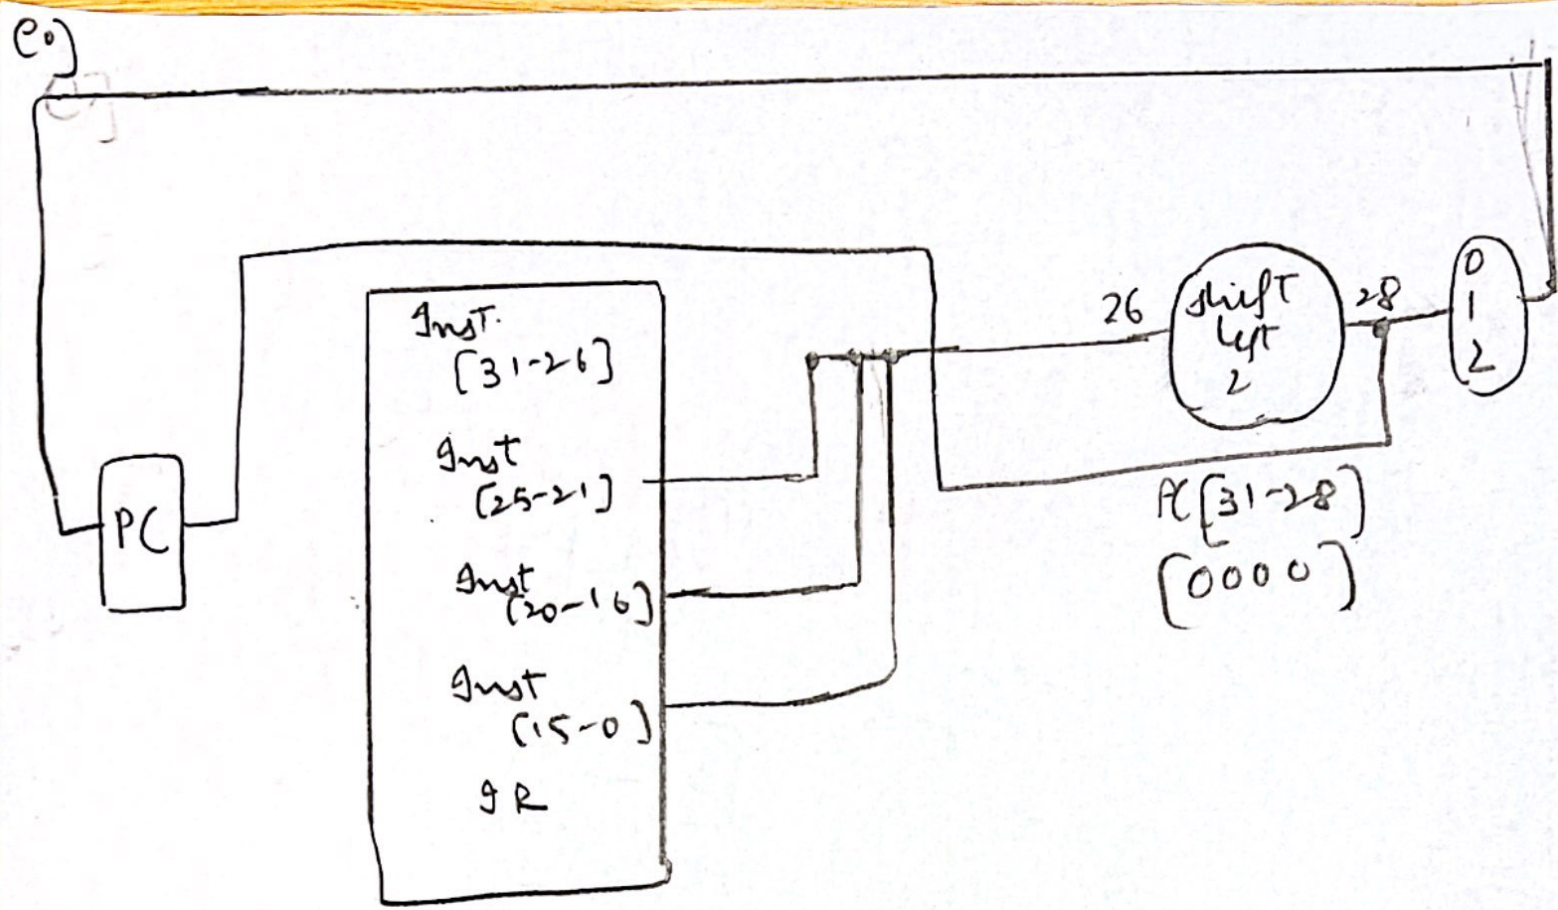 eo)
Inst.
[31-26]
Inst
[25-21]
Inst
[20-16]
Inst
[15-0]
IR
PC
26
shift
left
2
28
0
1
2
PC[31-28]
[0000]